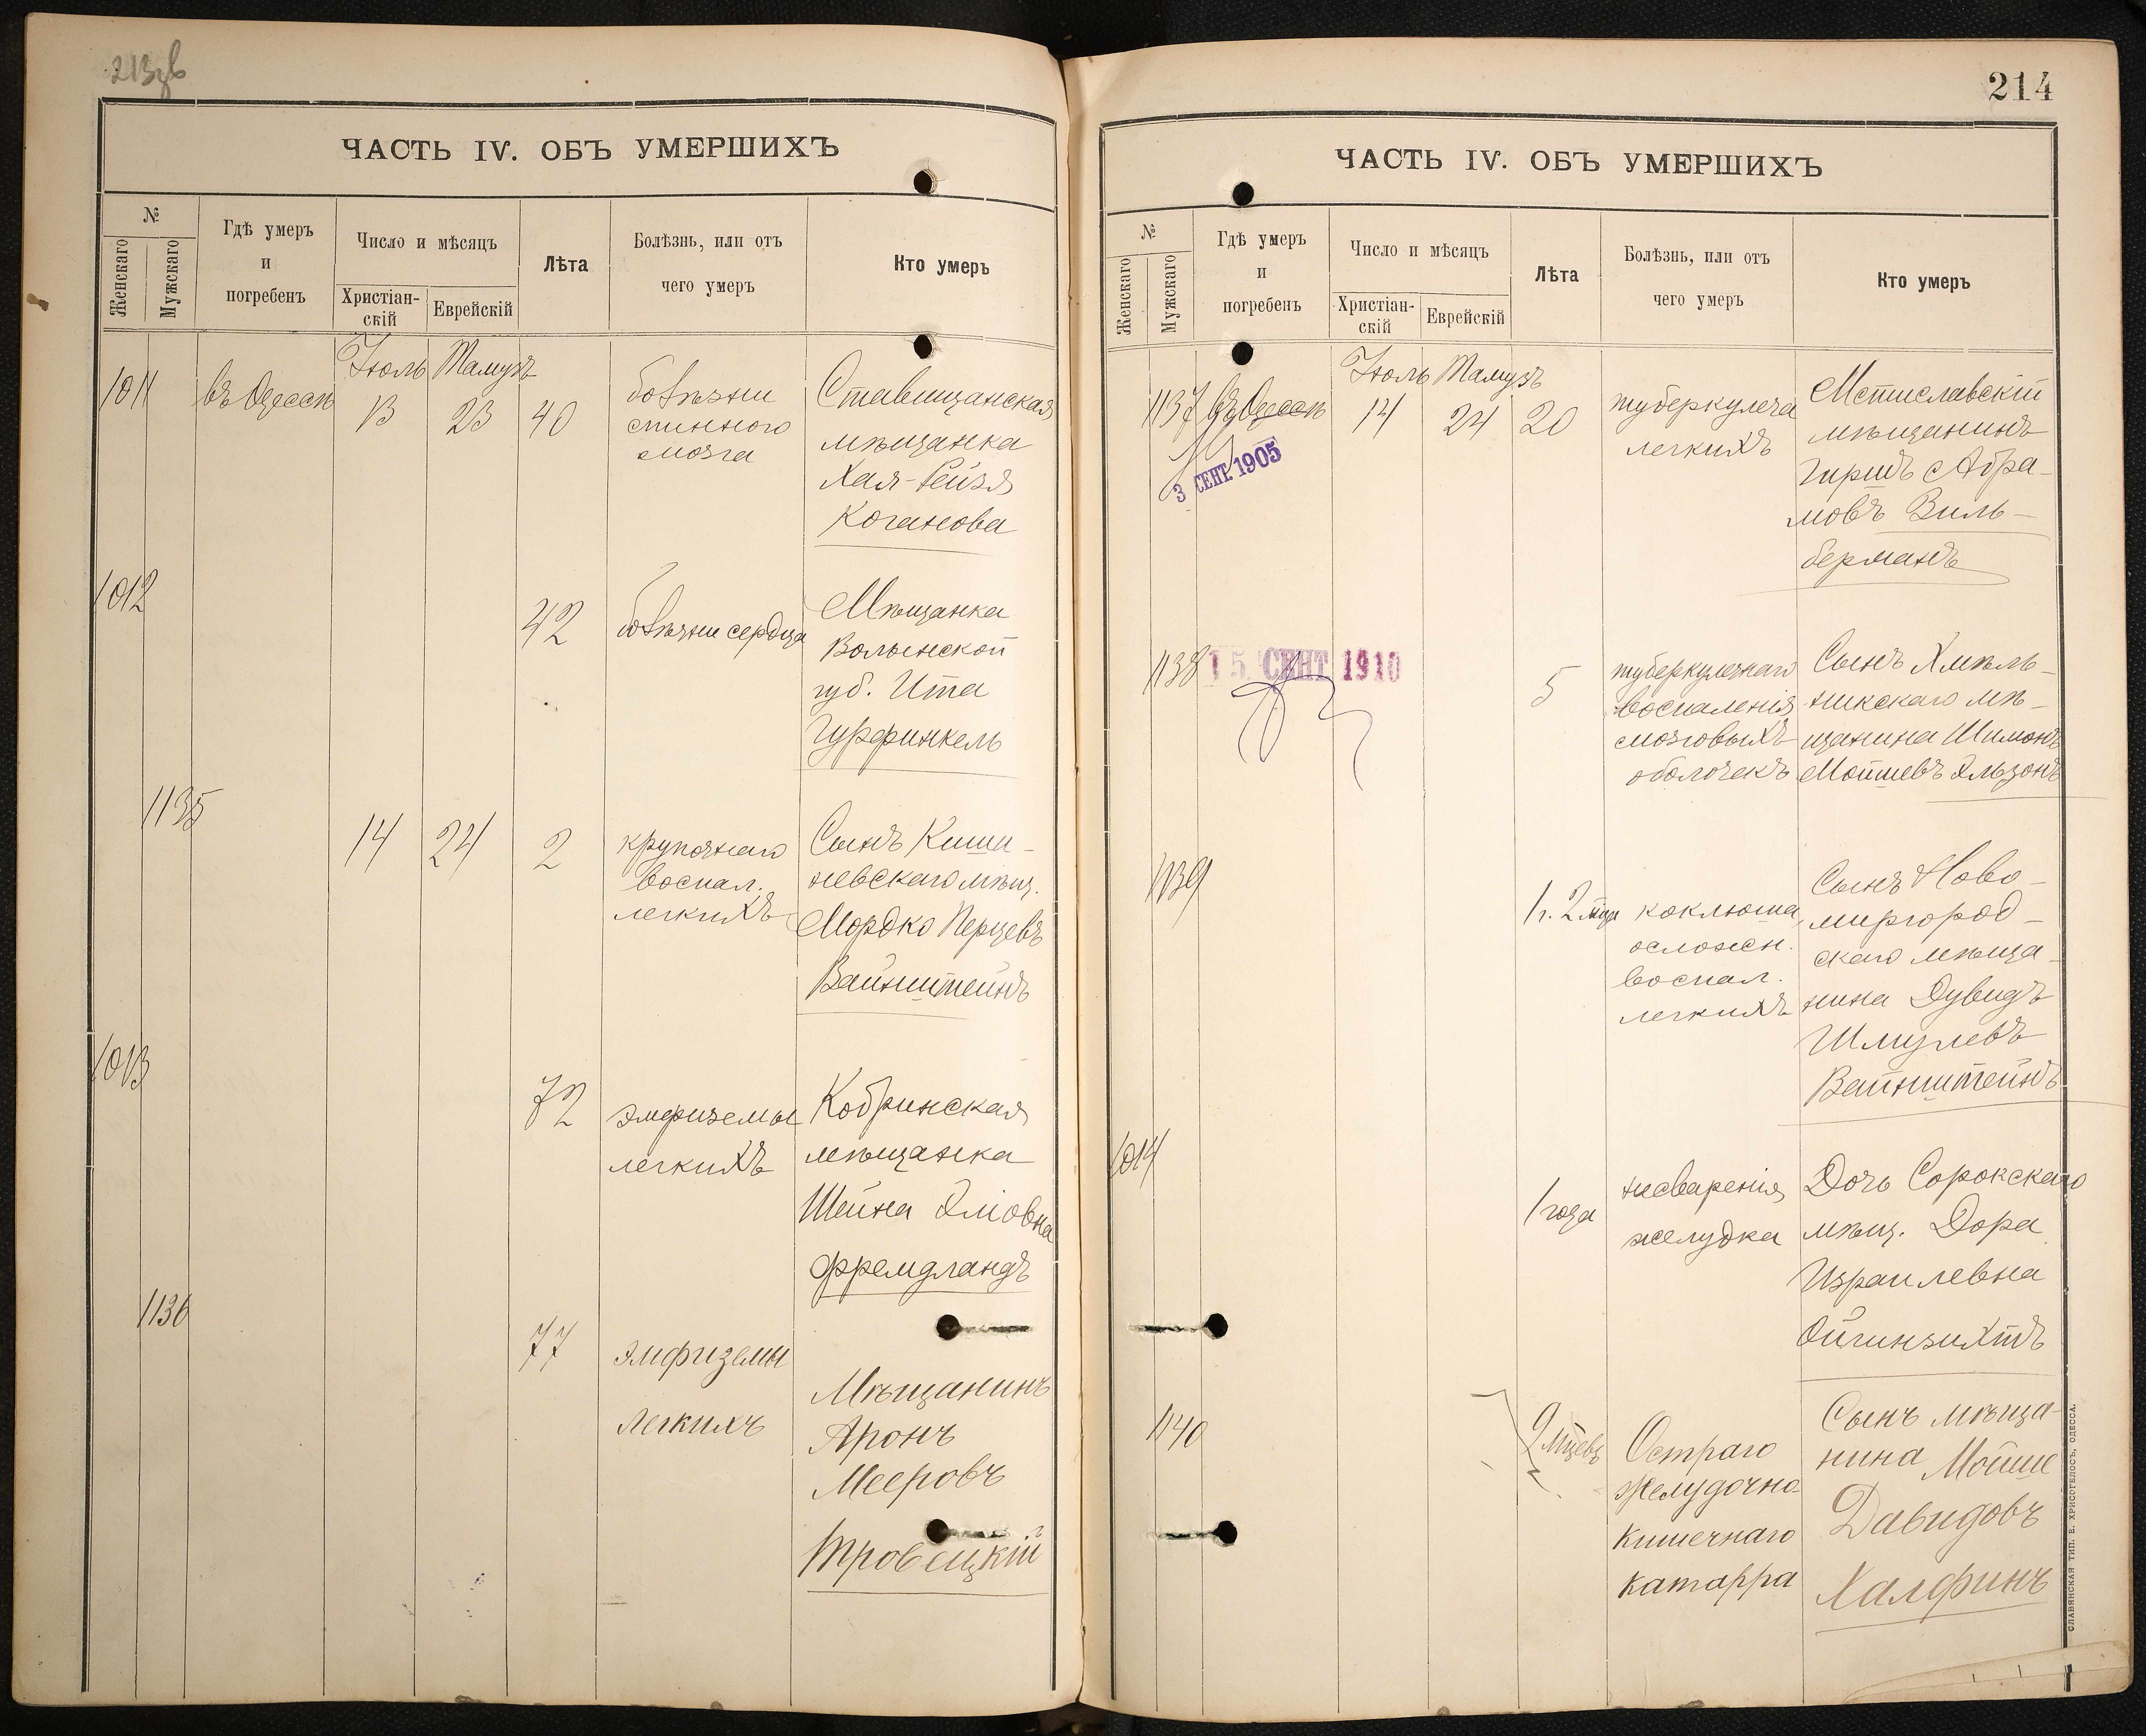 213 об
ЧАСТЬ IV. ОБЪ УМЕРШИХЪ
№
Женскаго
Мужскаго
Гдѣ умеръ
и
погребенъ
Число и мѣсяцъ
Христіан-
скій
Еврейскій
Лѣта
Болѣзнь, или отъ
чего умеръ
Кто умеръ
Іюль Тамузъ
1011 въ Одессѣ 13 23 40
болѣзни
спинного
мозга
Ставищанская
мѣщанка
Хая-Рейзя
Коганова
1012
42
болѣзни сердца
Мѣщанка
Волынской
губ. Ита
Гурфинкель
1135
14 24 2
крупознаго
воспал.
легкихъ
Сынъ Киши-
невскаго мѣщ.
Мордко Перцевъ
Вайнштейнъ
1013
72
эмфиземы
легкихъ
Кобринская
мѣщанка
Шейна Эліовна
Фремдландъ
1136
77
эмфиземы
легкихъ
Мѣщанинъ
Аронъ
Мееровъ
214
ЧАСТЬ IV. ОБЪ УМЕРШИХЪ
№
Женскаго
Мужскаго
Гдѣ умеръ
и
погребенъ
Число и мѣсяцъ
Христіан-
скій
Еврейскій
Лѣта
Болѣзнь, или отъ
чего умеръ
Кто умеръ
Іюль Тамузъ
1137 въ Одессѣ 14 24 20
3 СЕНТ. 1905
туберкулеза
легкихъ
Мстиславскій
мѣщанинъ
Гиршъ Абра-
мовъ Зиль-
берманъ
1138
15 СЕНТ 1910
5
туберкулезнаго
воспаленія
мозговыхъ
оболочекъ
Сынъ Хмѣль-
никскаго мѣ-
щанина Шимонъ
Мойшевъ Эльзонъ
1139
1 г. 2 мца
коклюша,
осложн.
воспал.
легкихъ
Сынъ Ново-
миргород-
скаго мѣща-
нина Дувидъ
Шмулевъ
Вайнштейнъ
1014
1 года
несваренія
желудка
Дочь Сорокскаго
мѣщ. Дора
Израилевна
Ойгинзихтъ
1140
9 мцевъ
Остраго
желудочно
кишечнаго
катарра
Сынъ мѣща-
нина Мойше
Давидовъ
Халфинъ
СЛАВЯНСКАЯ ТИП. Е. ХРИСОГЕЛОСЪ, ОДЕССА.